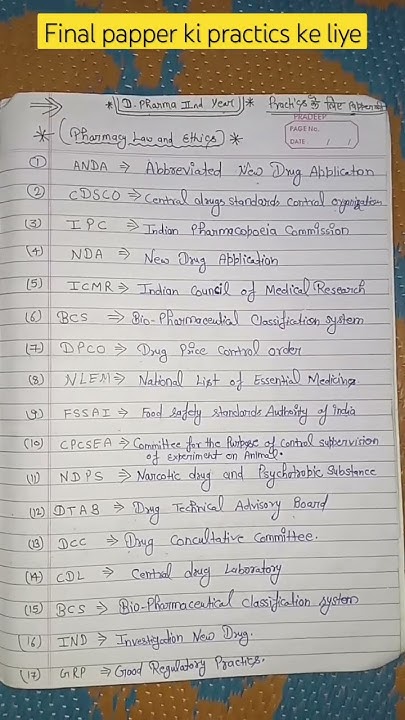 Final papper ki practics ke liye
* D. Pharma IInd Year * Practics के लिए
PRADEEP
PAGE No.
DATE / /
* (Pharmacy Law and Ethics) *
(1) ANDA ⇒ Abbreviated New Drug Applicaton
(2) CDSCO ⇒ Central drugs standards control organization
(3) IPC ⇒ Indian Pharmacopoeia Commission
(4) NDA ⇒ New Drug Application
(5) ICMR ⇒ Indian Council of Medical Research
(6) BCS ⇒ Bio-Pharmaceutical Classification system
(7) DPCO ⇒ Drug Price Control order
(8) NLEM ⇒ National List of Essential Medicine
(9) FSSAI ⇒ Food safety standards Authority of india
(10) CPCSEA ⇒ Committee for the Purpose of control supervision
of Experiment on Animal.
(11) NDPS ⇒ Narcotic drug and Psychotropic Substance
(12) DTAB ⇒ Drug Technical Advisory Board
(13) DCC ⇒ Drug Concultative Committee.
(14) CDL ⇒ Central drug Laboratory
(15) BCS ⇒ Bio-Pharmaceutical classification system
(16) IND ⇒ Investigation New Drug.
(17) GRP ⇒ Good Regulatory Practics.